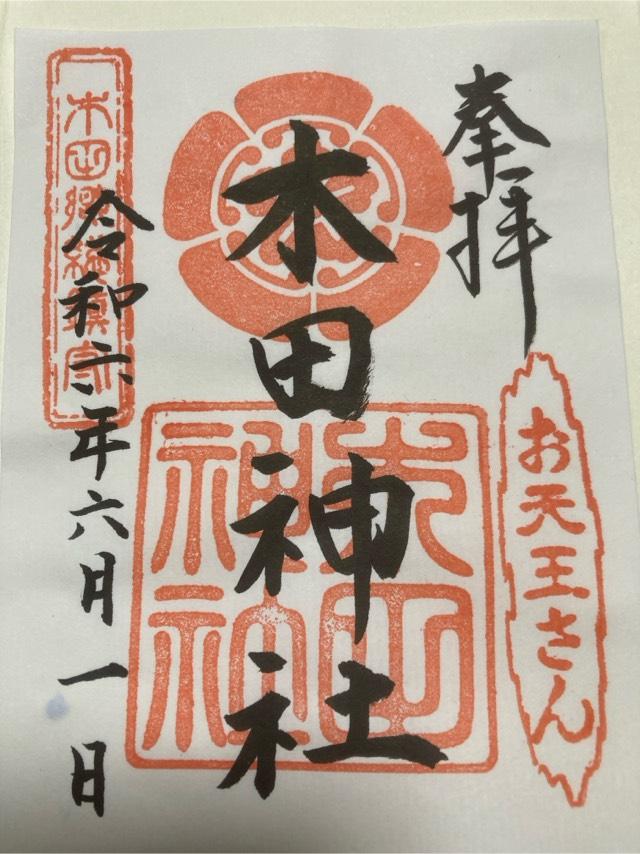 奉拝
お天王さん
木田神社
木田神社
木田郷総鎮守
令和六年六月一日